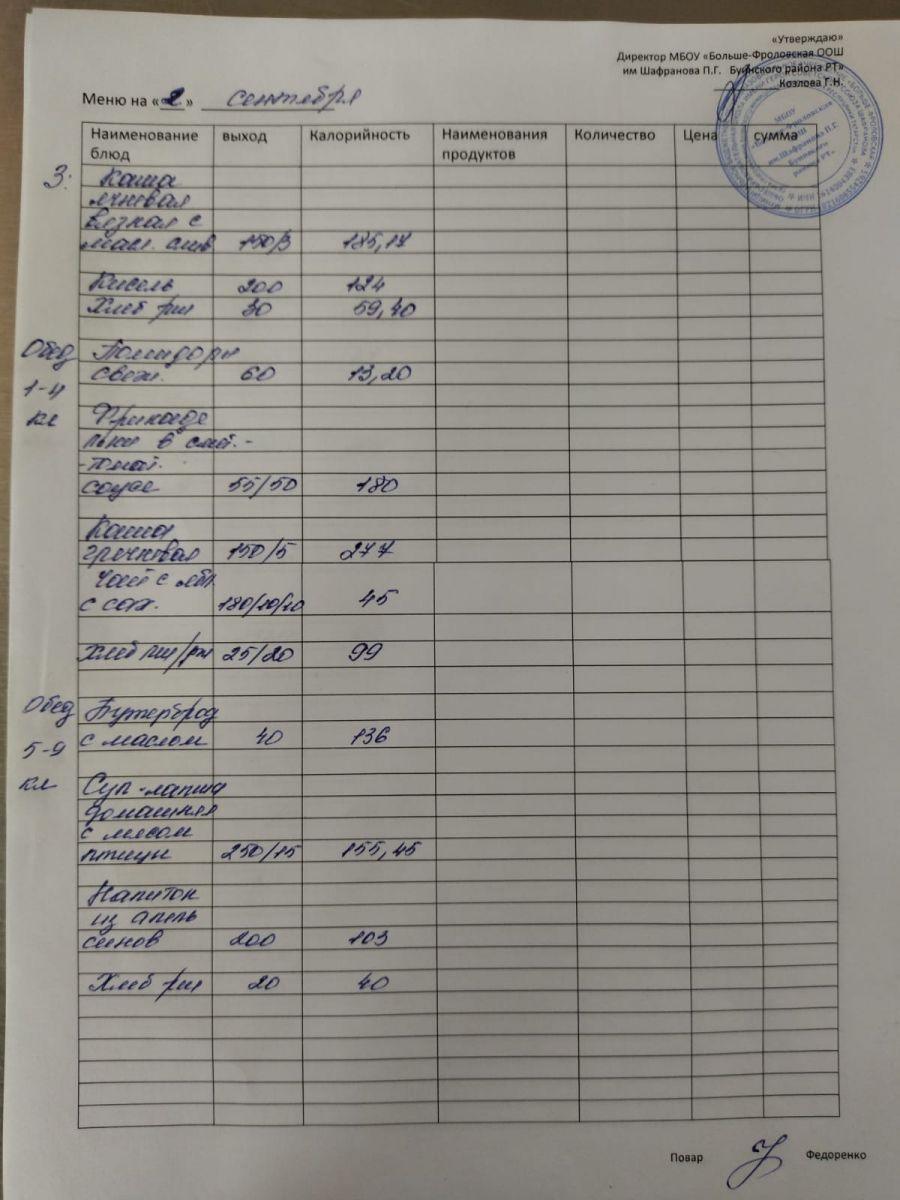 «Утверждаю»
Директор МБОУ «Больше-Фроловская ООШ
им Шафранова П.Г. Буинского района РТ»
Козлова Г.Н.
Меню на «2» сентября
МБОУ
им.Шафранова П.Г.
Буинского
района РТ»
Наименование блюд выход Калорийность Наименования продуктов Количество Цена сумма
З: Каша
ячневая
вязкая с
масл. слив 150/3 185,17
Кисель 200 124
Хлеб рж 30 59,40
Обед Помидоры
свеж. 60 13,20
1-4
кл Фрикаде
льки в смет.-
-томат.
соусе 55/50 180
Каша
гречневая 150/5 277
Чай с
с сах. 180/10/10 45
Хлеб пш/рж 25/20 99
Обед Бутерброд
с маслом 40 136
5-9
кл Суп-лапша
домашняя
с мясом
птицы 250/15 155,45
Напиток
из апель
синов 200 103
Хлеб рж 20 40
Повар Федоренко